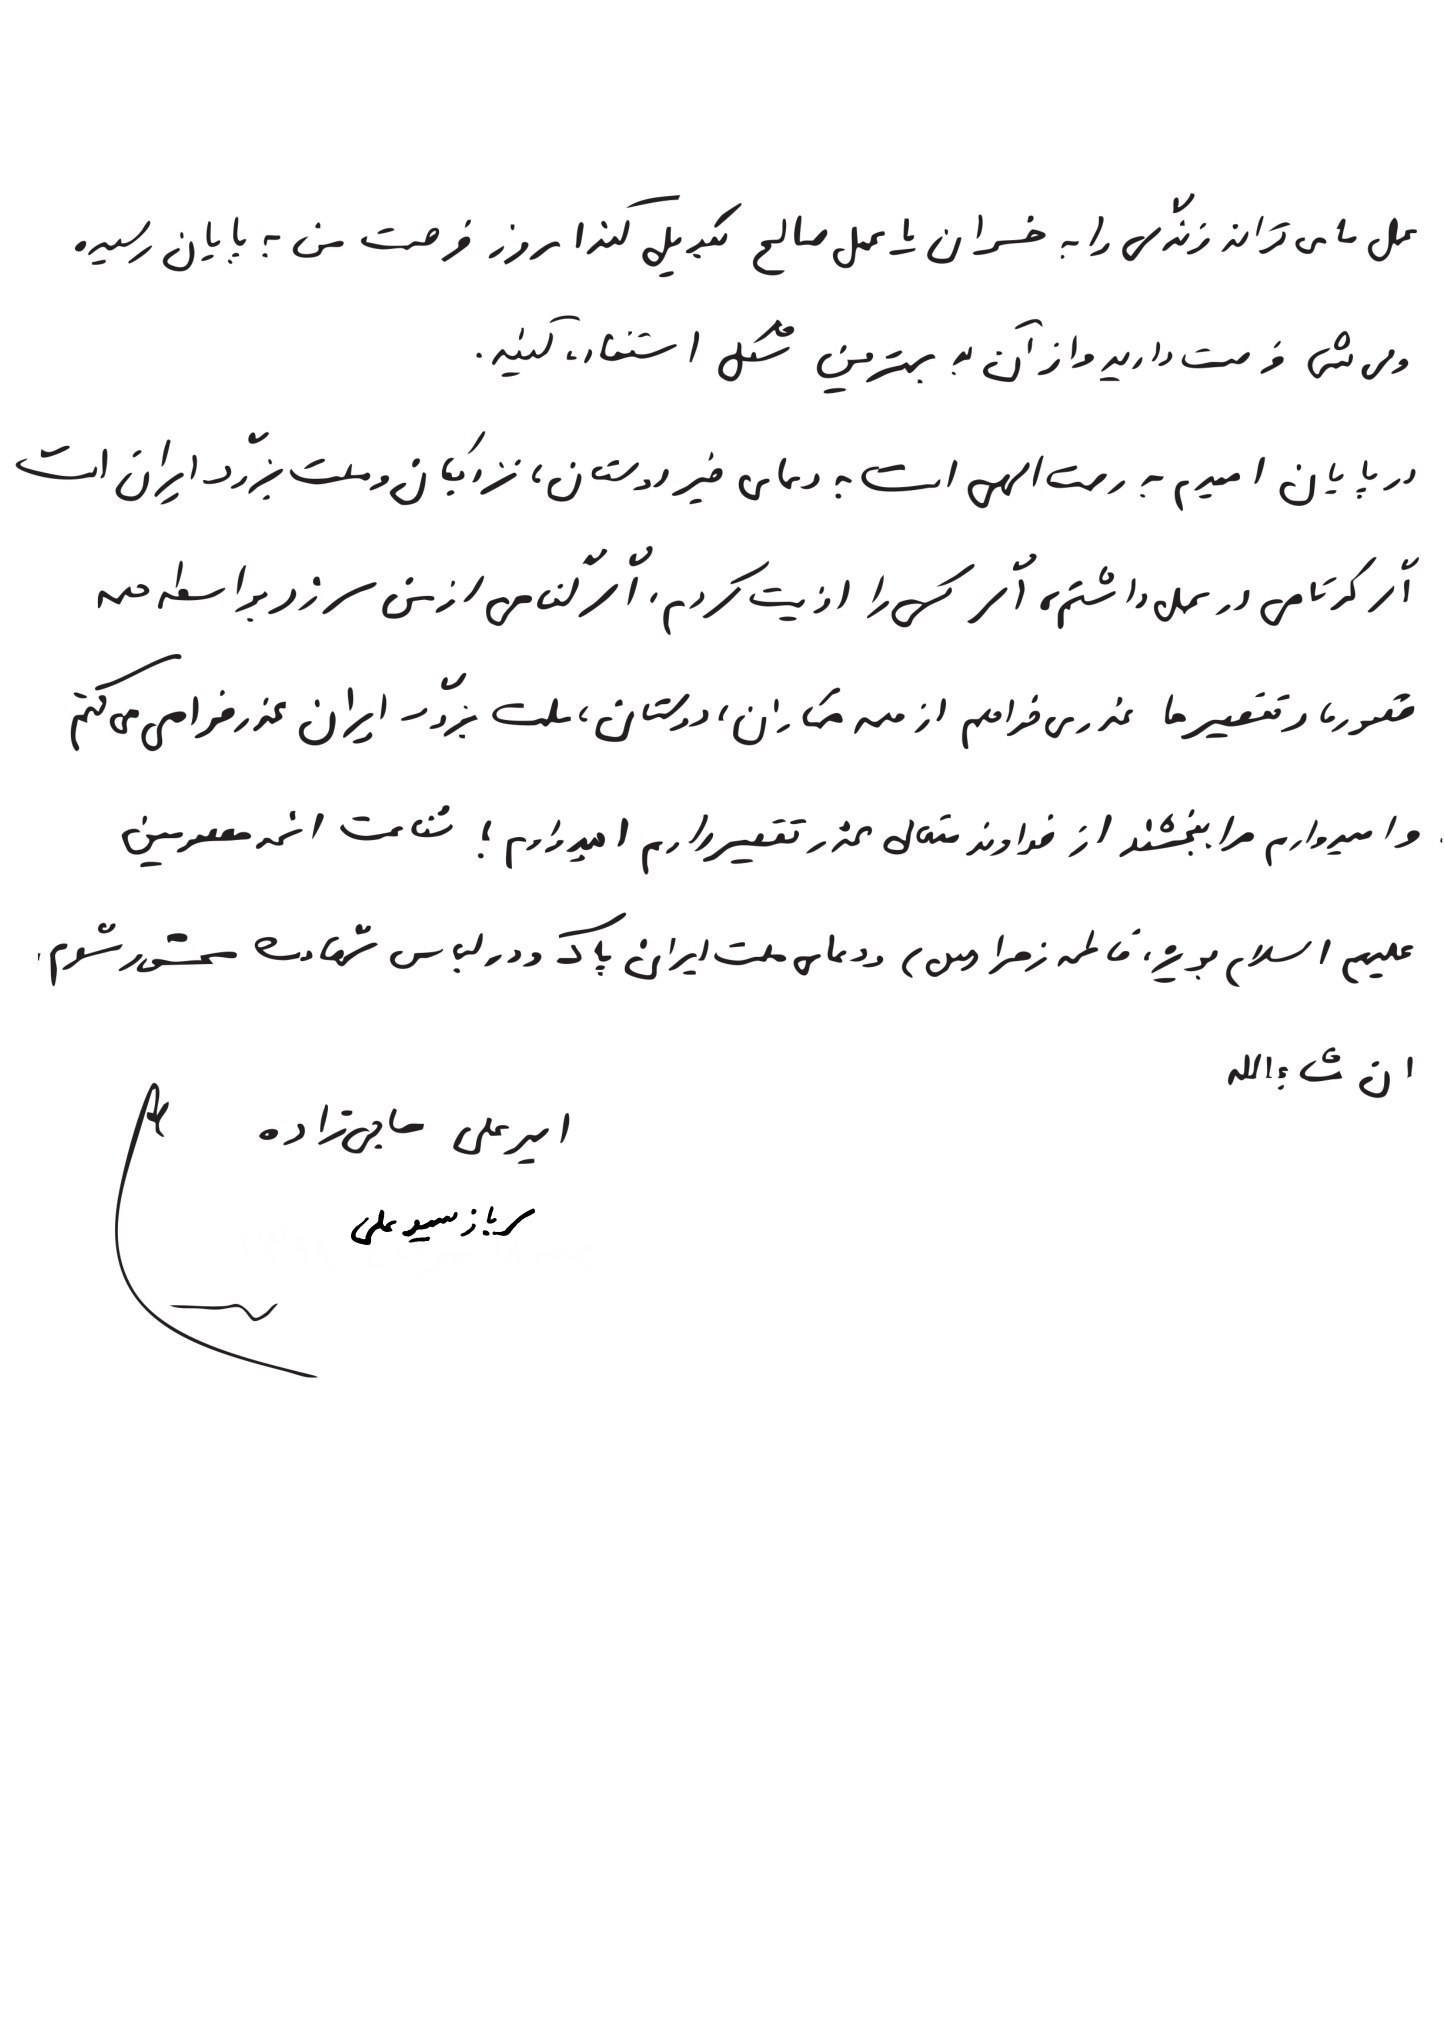 عمل ما می تواند زندگی را به خسران یا عمل صالح تبدیل کند امروز فرصت من به پایان رسیده
ولی شما فرصت دارید و از آن به بهترین شکل استفاده کنید.
در پایان امیدم به رحمت الهی است به دعای خیر دوستان، نزدیکان و ملت بزرگ ایران است
اگر کوتاهی در عمل داشتم، اگر کسی را اذیت کردم، اگر گناهی از من سر زد بواسطه همه
قصورها و تقصیرها عذر می‌خواهم از همه همکاران، دوستان، ملت بزرگ ایران عذرخواهی می کنم
و امیدوارم مرا ببخشند از خداوند متعال عذر تقصیر دارم امیدوارم با شفاعت ائمه معصومین
علیهم السلام بویژه، فاطمه زهرا (س) و دعای ملت ایران پاک و در لباس شهادت محشور شوم.
ان شاءالله
امیرعلی حاجی‌زاده
سرباز سید علی